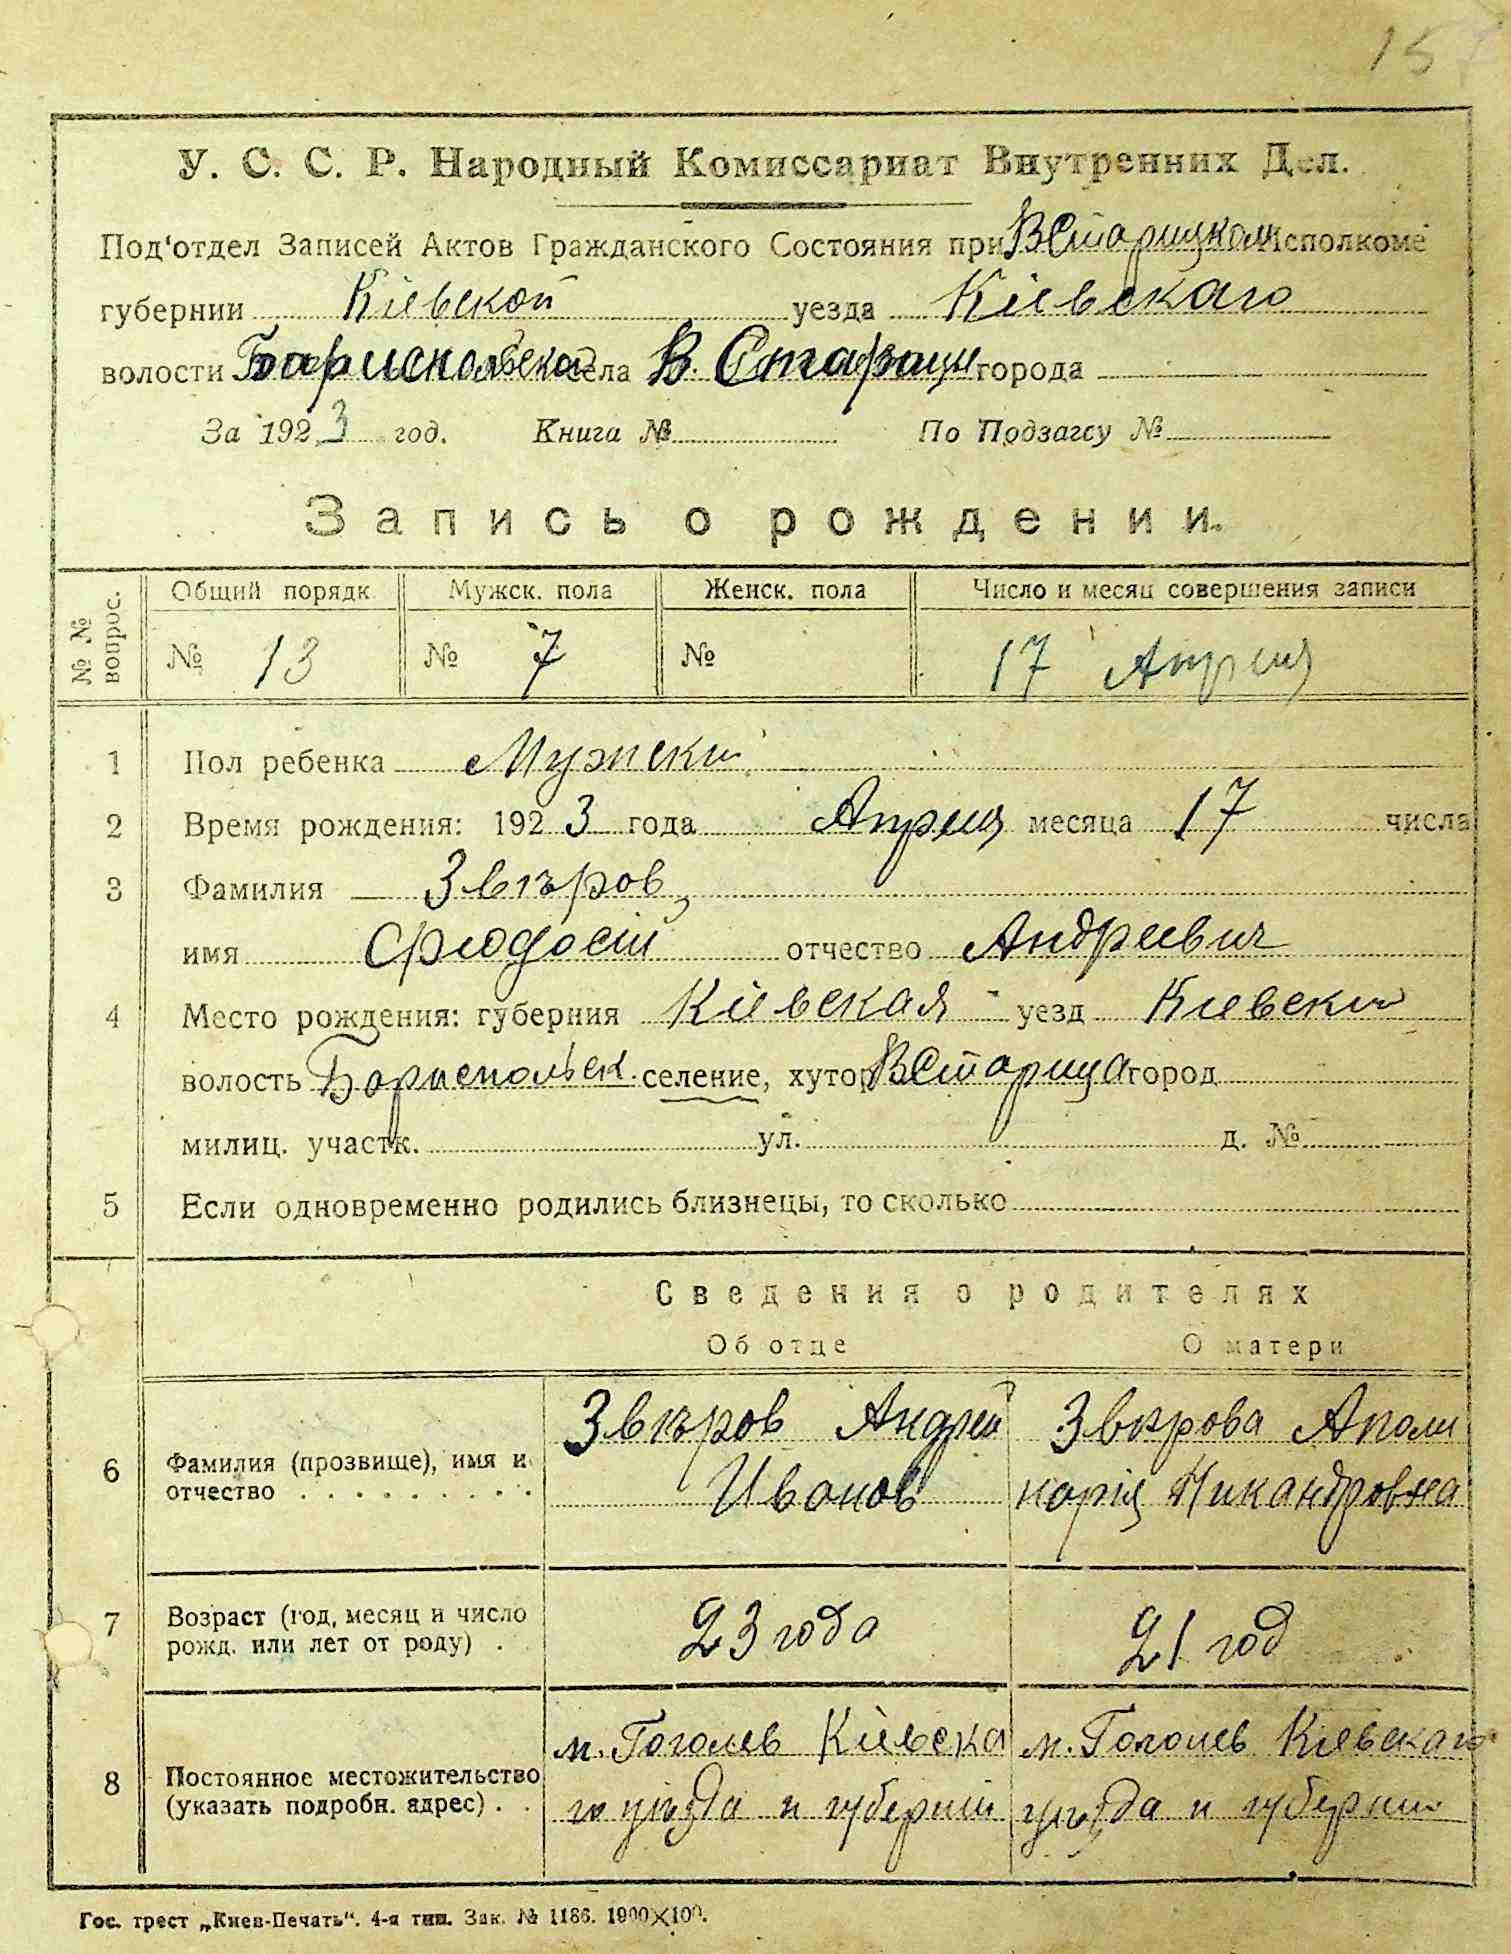 15
У. С. С. Р. Народный Комиссариат Внутренних Дел.
Под'отдел Записей Актов Гражданского Состояния при ВСтарицком Исполкоме
губернии Кіевской уезда Кіевскаго
волости Барыспольской села В. Старицы города
За 1923 год. Книга № По Подзагсу №
Запись о рождении.
№№ вопрос. Общий порядк Мужск. пола Женск. пола Число и месяц совершения записи
№ 13 № 7 № 17 Апреля
1 Пол ребенка Мужский
2 Время рождения: 1923 года Апреля месяца 17 числа
3 Фамилия Звѣров
имя Феодосий отчество Андреевич
4 Место рождения: губерния Кіевская уезд Киевский
волость Борыспольск. селение, хутор ВСтарица город
милиц. участк. ул. д. №
5 Если одновременно родились близнецы, то сколько
Сведения о родителях
Об отце О матери
6 Фамилия (прозвище), имя и отчество . . . . . . . . .
Звѣров Андрей
Иванов
Звѣрова Аполи
нарія Никандровна
7 Возраст (год, месяц и число рожд. или лет от роду) . .
23 года
21 год
8 Постоянное местожительство (указать подробн. адрес) . .
м. Гоголев Кіевска
го уѣзда и губерніи
м. Гоголев Кіевскаго
уѣзда и губернии
Гос. трест „Киев-Печать“. 4-я тип. Зак. № 1186. 1900×100.